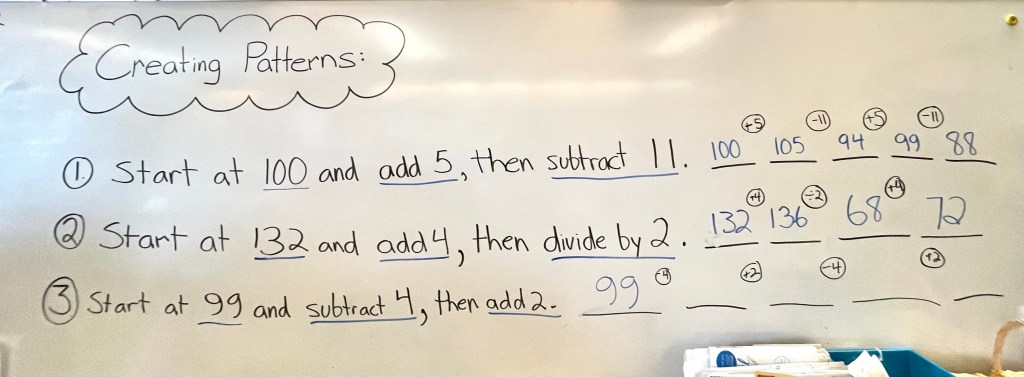 Creating Patterns:
+5 -11 +5 -11
① Start at 100 and add 5, then subtract 11. 100 105 94 99 88
+4 ÷2 +4
② Start at 132 and add 4, then divide by 2. 132 136 68 72
-4 +2 -4 +2
③ Start at 99 and subtract 4, then add 2. 99